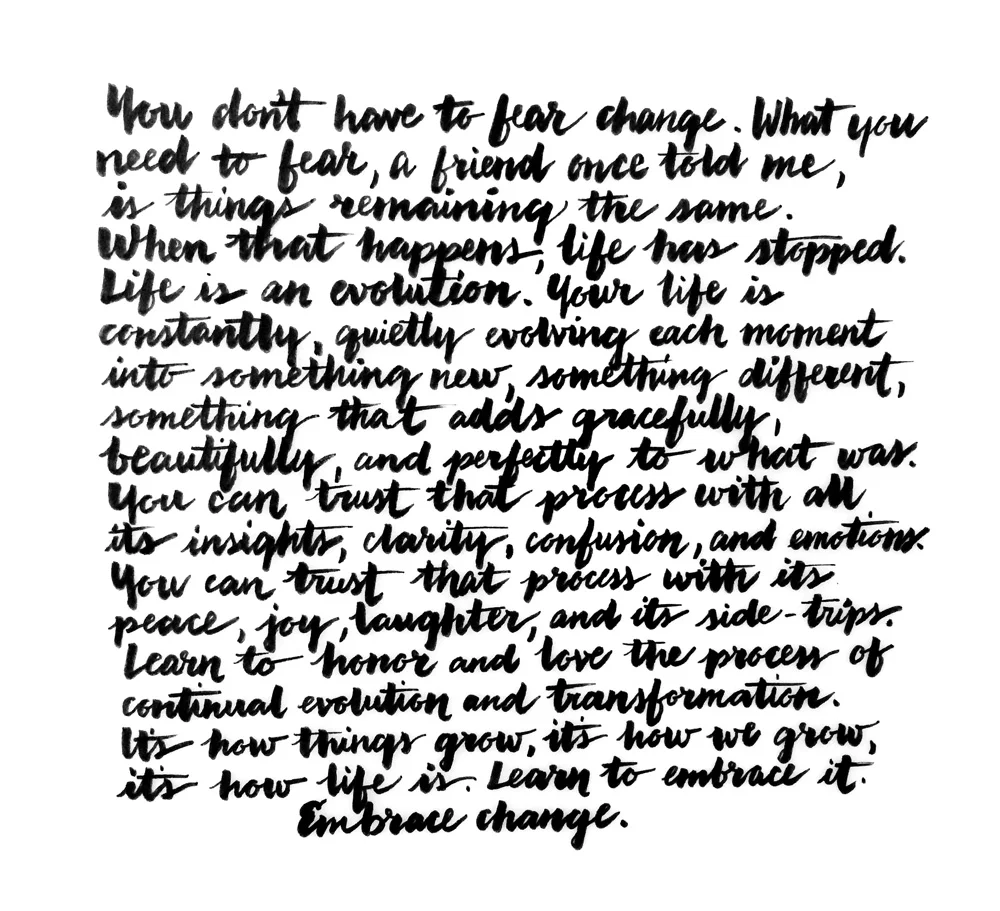 You don't have to fear change. What you
need to fear, a friend once told me,
is things remaining the same.
When that happens, life has stopped.
Life is an evolution. Your life is
constantly, quietly evolving each moment
into something new, something different,
something that adds gracefully,
beautifully, and perfectly to what was.
You can trust that process with all
its insights, clarity, confusion, and emotions.
You can trust that process with its
peace, joy, laughter, and its side-trips.
Learn to honor and love the process of
continual evolution and transformation.
It's how things grow, it's how we grow,
it's how life is. Learn to embrace it.
Embrace change.